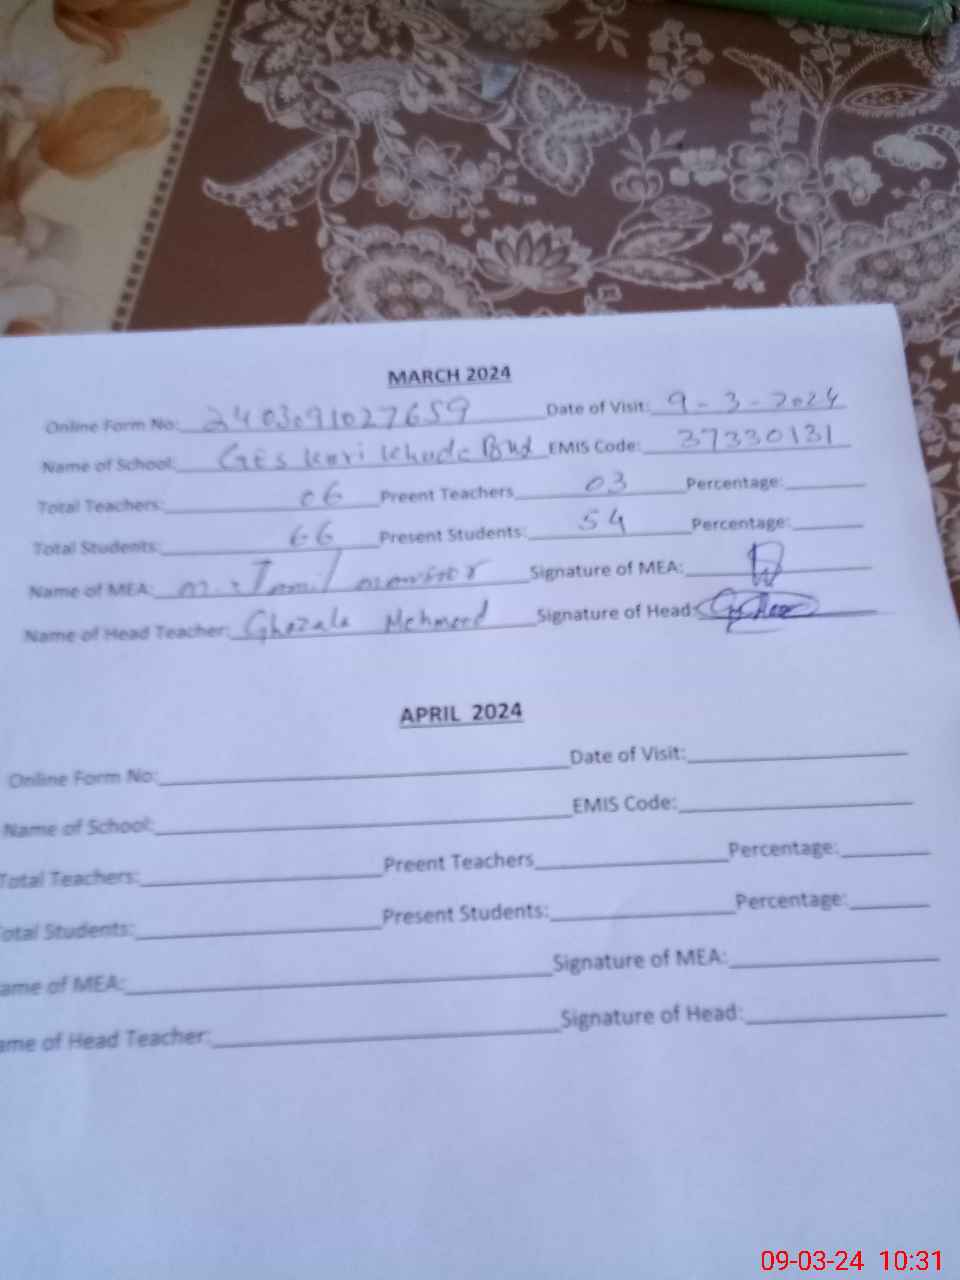 MARCH 2024
Online Form No: 2403091027659 Date of Visit: 9-3-2024
Name of School: GES Kori Khuda Bux EMIS Code: 37330131
Total Teachers: 06 Preent Teachers 03 Percentage:
Total Students: 66 Present Students: 54 Percentage:
Name of MEA: M. Jamil monitor Signature of MEA:
Name of Head Teacher: Ghazala Mehmood Signature of Head:
APRIL 2024
Online Form No: Date of Visit:
Name of School: EMIS Code:
Total Teachers: Preent Teachers Percentage:
otal Students: Present Students: Percentage:
ame of MEA: Signature of MEA:
ame of Head Teacher: Signature of Head:
09-03-24 10:31